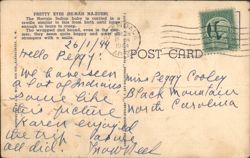 PRETTY EYES (DE-NAH NA-ZUHN)
The Navajo Indian baby is carried in a
cradle similar to this from birth until old
enough to learn to creep.
The wrapped and bound, even in the sum-
mer, they seem quite happy and greet all
strangers with a smile.
26/11/44
POST CARD
Hello Peggy!
We have seen
a lot of Indians
some like
this picture
Karen enjoyed
the trip
all did.
Miss Peggy Cooley
Black Mountain
North Carolina